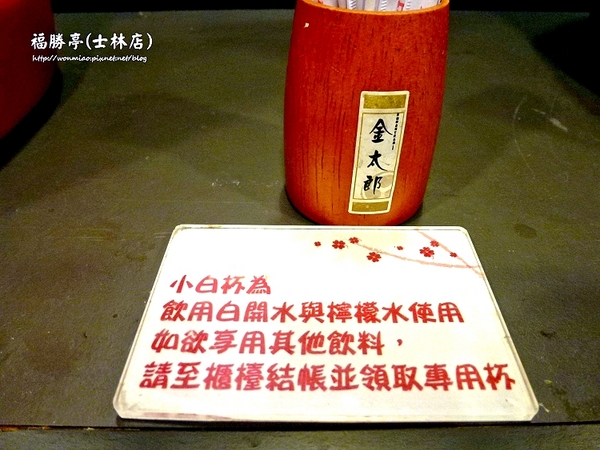 福勝亭(士林店)
http://wonmiao.pixnet.net/blog
金太郎
小白杯為
飲用白開水與檸檬水使用
如欲享用其他飲料，
請至櫃檯結帳並領取專用杯